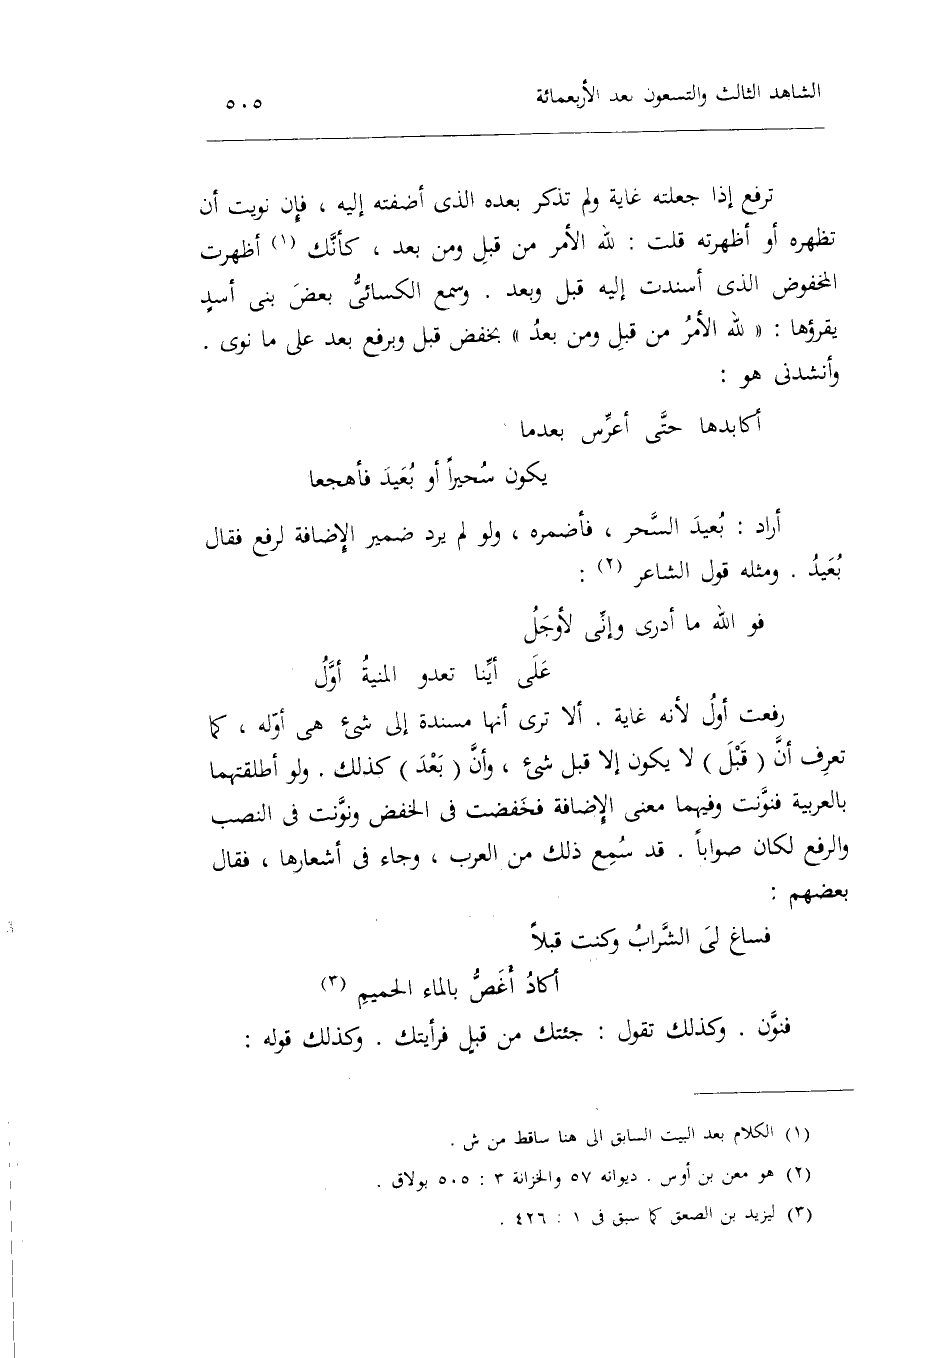 الشاهد الثالث والتسعون بعد الأربعمائة ٥٠٥
ترفع إذا جعلته غاية ولم تذكر بعده الذى أضفته إليه ، فإن نويت أن
تظهره أو أظهرته قلت : لله الأمر من قبلِ ومن بعد ، كأنَّك (١) أظهرت
المخفوض الذى أسندت إليه قبل وبعد . وسمع الكسائىُّ بعضَ بنى أسدٍ
يقرؤها : « لله الأمرُ من قبلِ ومن بعدُ » بخفض قبل وبرفع بعد على ما نوى .
وأنشدنى هو :
أكابدها حتَّى أعرِّس بعدما
يكون سُحيراً أو بُعَيدَ فأهجعا
أراد : بُعيدَ السَّحر ، فأضمره ، ولو لم يرد ضمير الإضافة لرفع فقال
بُعَيدُ . ومثله قول الشاعر (٢) :
فو الله ما أدرى وإنِّى لأوجَلُ
عَلَى أيِّنا تعدو المنيةُ أوَّلُ
رفعت أولُ لأنه غاية . ألا ترى أنها مسندة إلى شىء هى أوّله ، كما
تعرِف أنَّ ( قَبْلَ ) لا يكون إلا قبل شىء ، وأنَّ ( بَعْدَ ) كذلك . ولو أطلقتهما
بالعربية فنوَّنت وفيهما معنى الإضافة فخَفضت فى الخفض ونوَّنت فى النصب
والرفع لكان صواباً . قد سُمِع ذلك من العرب ، وجاء فى أشعارها ، فقال
بعضهم :
فساغ لىَ الشَّرابُ وكنت قبلاً
أكادُ أغَصُّ بالماء الحميمِ (٣)
فنوَّن . وكذلك تقول : جئتك من قبلٍ فرأيتك . وكذلك قوله :
(١) الكلام بعد البيت السابق الى هنا ساقط من ش .
(٢) هو معن بن أوس . ديوانه ٥٧ والخزانة ٣ : ٥٠٥ بولاق .
(٣) ليزيد بن الصعق كما سبق فى ١ : ٤٢٦ .